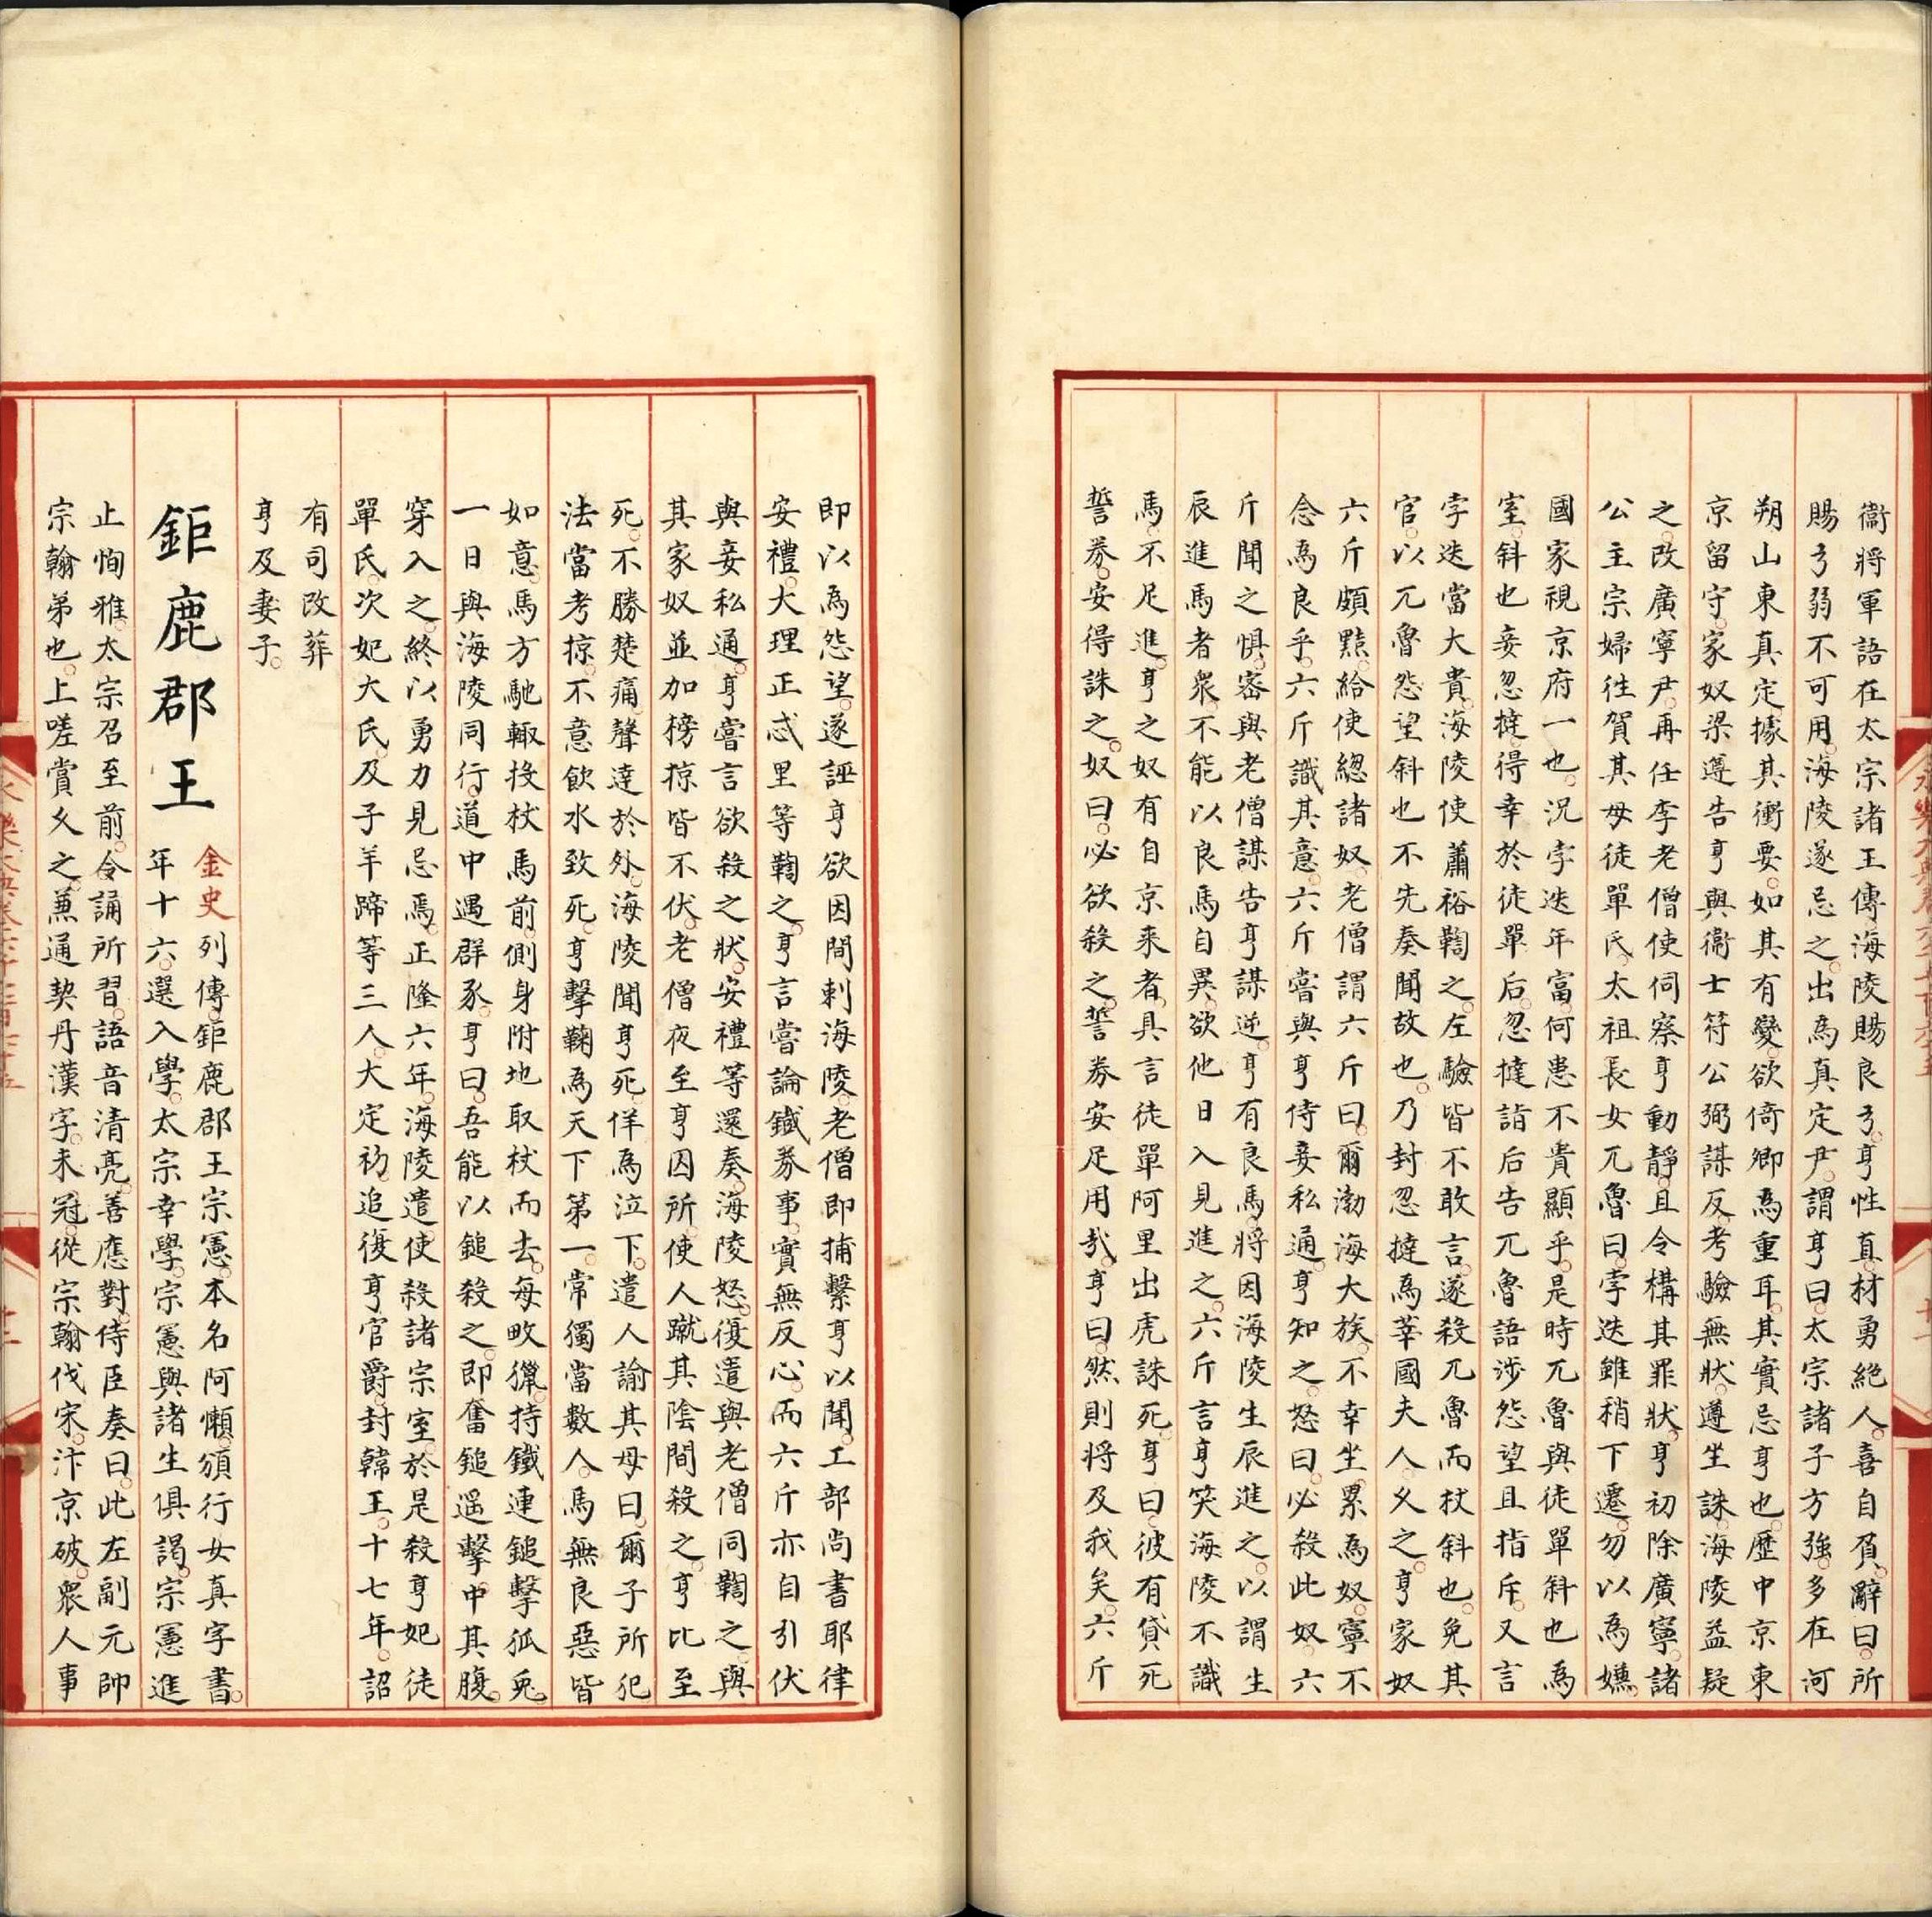 衞將軍語在太宗諸王傳海陵賜良弓亨性直材勇絶人喜自負辭曰所
賜弓弱不可用海陵遂忌之出為真定尹謂亨曰太宗諸子方強多在河
朔山東真定據其衝要如其有變欲倚卿為重耳其實忌亨也歷中京東
京留守家奴梁遵告亨與衞士符公弼謀反考驗無狀遵坐誅海陵益疑
之改廣寧尹再任李老僧使伺察亨動靜且令構其罪狀亨初除廣寧諸
公主宗婦徃賀其母徒單氏太祖長女兀魯曰孛迭雖稍下遷勿以為嫌
國家視京府一也況孛迭年富何患不貴顯乎是時兀魯與徒單斜也為
室斜也妾忽撻得幸於徒單后忽撻詣后告兀魯語涉怨望且指斥又言
孛迭當大貴海陵使蕭裕鞫之左驗皆不敢言遂殺兀魯而杖斜也免其
官以兀魯怨望斜也不先奏聞故也乃封忽撻為莘國夫人久之亨家奴
六斤頗黠給使總諸奴老僧謂六斤曰爾渤海大族不幸坐累為奴寧不
念為良乎六斤識其意六斤嘗與亨侍妾私通亨知之怒曰必殺此奴六
斤聞之懼密與老僧謀告亨謀逆亨有良馬將因海陵生辰進之以謂生
辰進馬者衆不能以良馬自異欲他日入見進之六斤言亨笑海陵不識
馬不足進亨之奴有自京来者具言徒單阿里出虎誅死亨曰彼有貸死
誓券安得誅之奴曰必欲殺之誓券安足用哉亨曰然則将及我矣六斤
即以為怨望遂誣亨欲因間刺海陵老僧即捕繫亨以聞工部尚書耶律
安禮大理正忒里等鞫之亨言嘗論鐵券事實無反心而六斤亦自引伏
與妾私通亨嘗言欲殺之狀安禮等還奏海陵怒復遣與老僧同鞫之與
其家奴並加榜掠皆不伏老僧夜至亨囚所使人蹴其陰間殺之亨比至
死不勝楚痛聲達於外海陵聞亨死佯為泣下遣人諭其母曰爾子所犯
法當考掠不意飲水致死亨擊鞠為天下第一常獨當數人馬無良惡皆
如意馬方馳輙投杖馬前側身附地取杖而去每畋獵持鐵連鎚擊狐兎
一日與海陵同行道中遇群豕亨曰吾能以鎚殺之即奮鎚遥擊中其腹
穿入之終以勇力見忌焉正隆六年海陵遣使殺諸宗室於是殺亨妃徒
單氏次妃大氏及子羊蹄等三人大定初追復亨官爵封韓王十七年詔
有司改葬
亨及妻子
鉅鹿郡王
金史列傳鉅鹿郡王宗憲本名阿懶頒行女真字書
年十六選入學太宗幸學宗憲與諸生俱謁宗憲進
止恂雅太宗召至前令誦所習語音清亮善應對侍臣奏曰此左副元帥
宗翰弟也上嗟賞久之兼通契丹漢字未冠從宗翰伐宋汴京破衆人事